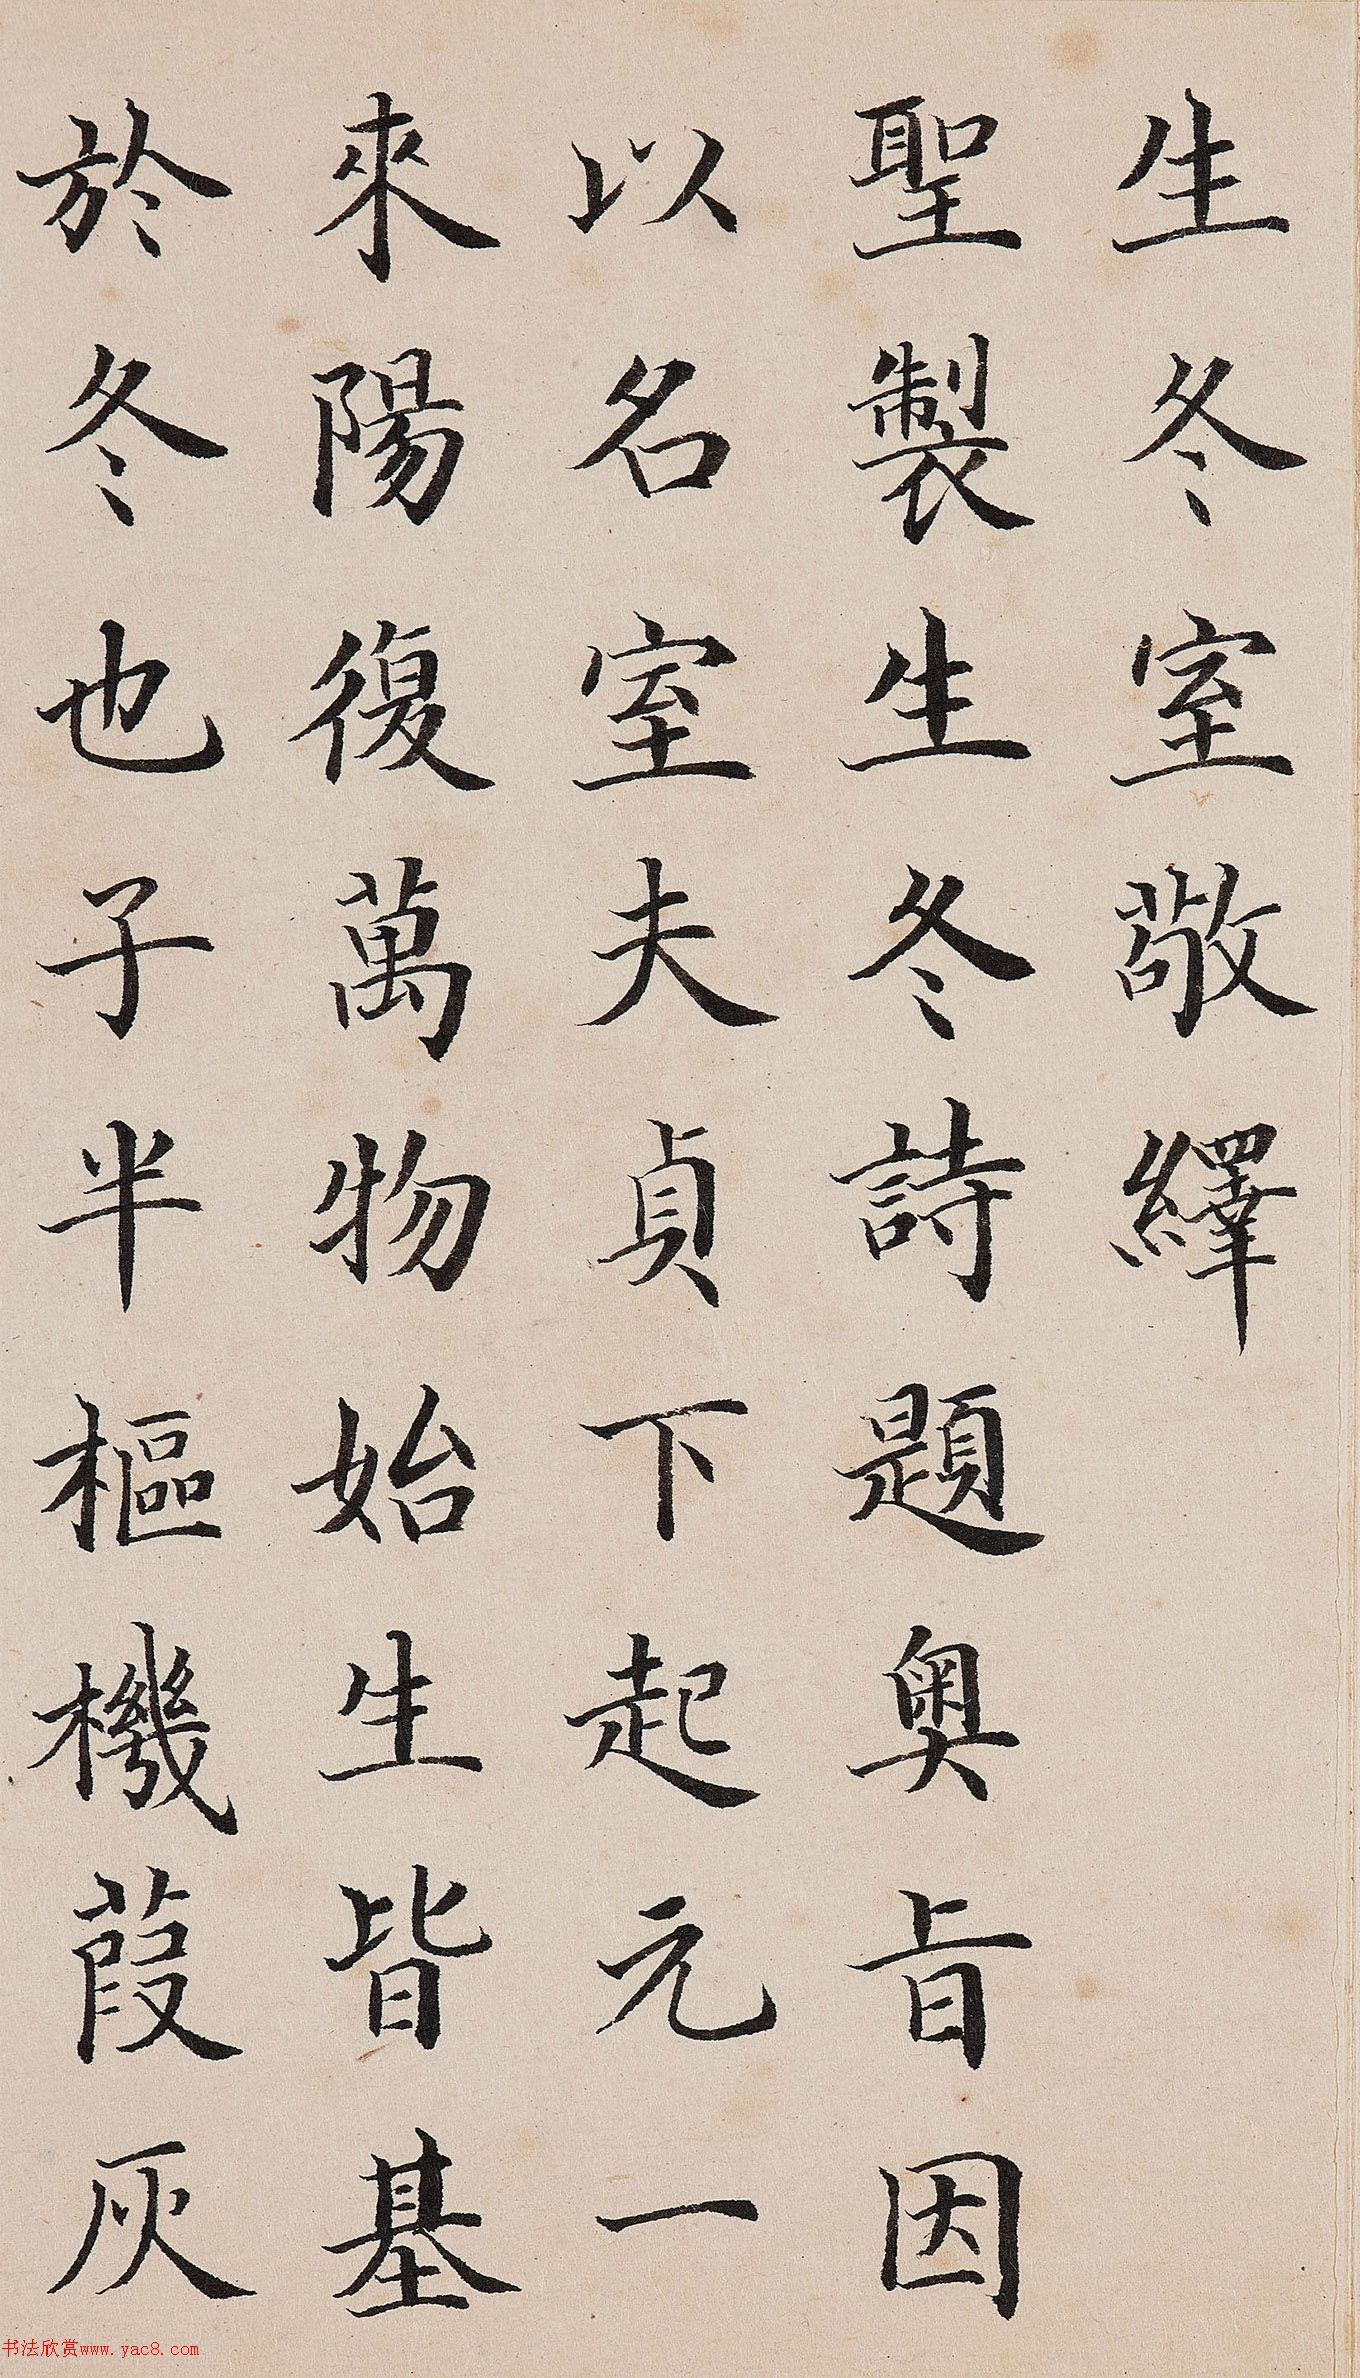 生冬室敬繹
聖製生冬詩題奧旨因
以名室夫貞下起元一
來陽復萬物始生皆基
於冬也子半樞機葭灰
书法欣赏www.yac8.com